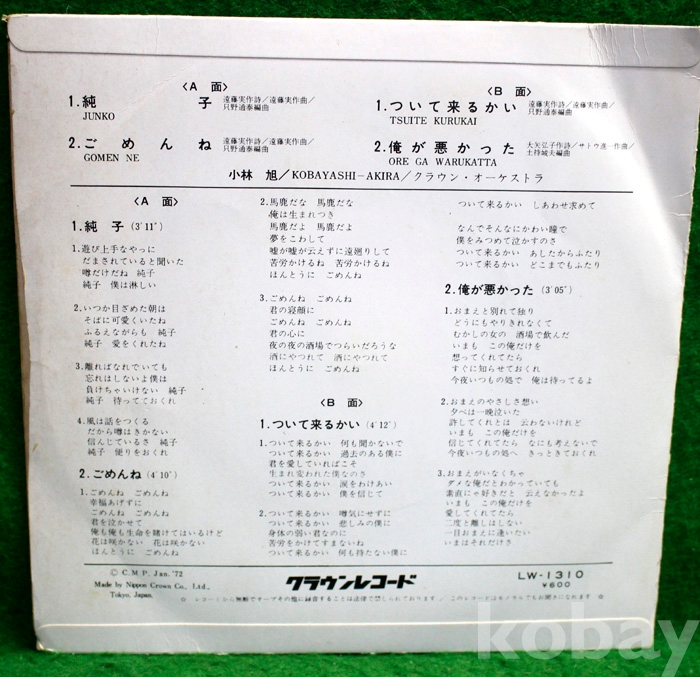 〈A 面〉
1.純 子 遠藤実作詩/遠藤実作曲/
只野通泰編曲
JUNKO
2.ごめんね 遠藤実作詩/遠藤実作曲/
只野通泰編曲
GOMEN NE
〈B 面〉
1.ついて来るかい 遠藤実作詩/遠藤実作曲/
只野通泰編曲
TSUITE KURUKAI
2.俺が悪かった 大矢弘子作詩/サトウ進一作曲/
土持城夫編曲
ORE GA WARUKATTA
小林 旭/KOBAYASHI-AKIRA/クラウン・オーケストラ
〈A 面〉
1.純 子 (3'11")
1.遊び上手なやっに
だまされていると聞いた
噂だけだね 純子
純子 僕は淋しい
2.いつか目ざめた朝は
そばに可愛くいたね
ふるえながらも 純子
純子 愛をくれたね
3.離ればなれでいても
忘れはしないよ僕は
負けちゃいけない 純子
純子 待ってておくれ
4.風は話をつくる
だから噂はきかない
信んじているさ 純子
純子 便りをおくれ
2.ごめんね (4'10")
1.ごめんね ごめんね
幸福あげずに
ごめんね ごめんね
君を泣かせて
俺も俺も生命を賭けてはいるけど
花は咲かない 花は咲かない
ほんとうに ごめんね
2.馬鹿だな 馬鹿だな
俺は生まれつき
馬鹿だよ 馬鹿だよ
夢をこわして
嘘が嘘が云えずに遠廻りして
苦労かけるね 苦労かけるね
ほんとうに ごめんね
3.ごめんね ごめんね
君の寝顔に
ごめんね ごめんね
君の心に
夜の夜の酒場でつらいだろうな
酒にやつれて 酒にやつれて
ほんとうに ごめんね
〈B 面〉
1.ついて来るかい (4'12")
1.ついて来るかい 何も聞かないで
ついて来るかい 過去のある僕に
君を愛していればこそ
生まれ変われた僕なのさ
ついて来るかい 涙をわけあい
ついて来るかい 僕を信じて
2.ついて来るかい 噂気にせずに
ついて来るかい 悲しみの僕に
身体の弱い君なのに
苦労をかけてすまないね
ついて来るかい 何も持たない僕に
ついて来るかい しあわせ求めて
なんでそんなにかわい瞳で
僕をみつめて泣かすのさ
ついて来るかい あしたからふたり
ついて来るかい どこまでもふたり
2.俺が悪かった (3'05")
1.おまえと別れて独り
どうにもやりきれなくて
むかしの女の 酒場で飲んだ
いまも この俺だけを
想ってくれてたら
すぐに知らせておくれ
今夜いつもの処で 俺は待ってるよ
2.おまえのやさしさ想い
夕べは一晩泣いた
許してくれとは 云わないけれど
いまも この俺だけを
信じてくれてたら なにも考えないで
今夜いつもの処へ きっときておくれ
3.おまえがいなくちゃ
ダメな俺だとわかっていても
素直にゃ好きだと 云えなかったよ
いまも この俺だけを
愛してくれてたら
二度と離しはしない
一目おまえに逢いたい
いまはそれだけさ
© C.M.P. Jan. '72
Made by Nippon Crown Co., Ltd.,
Tokyo, Japan.
クラウンレコード
LW-1310
¥600
☆ レコードから無断でテープその他に録音することは法律で禁じられております/このレコードはモノラルでもお聞きになれます ☆
kobay